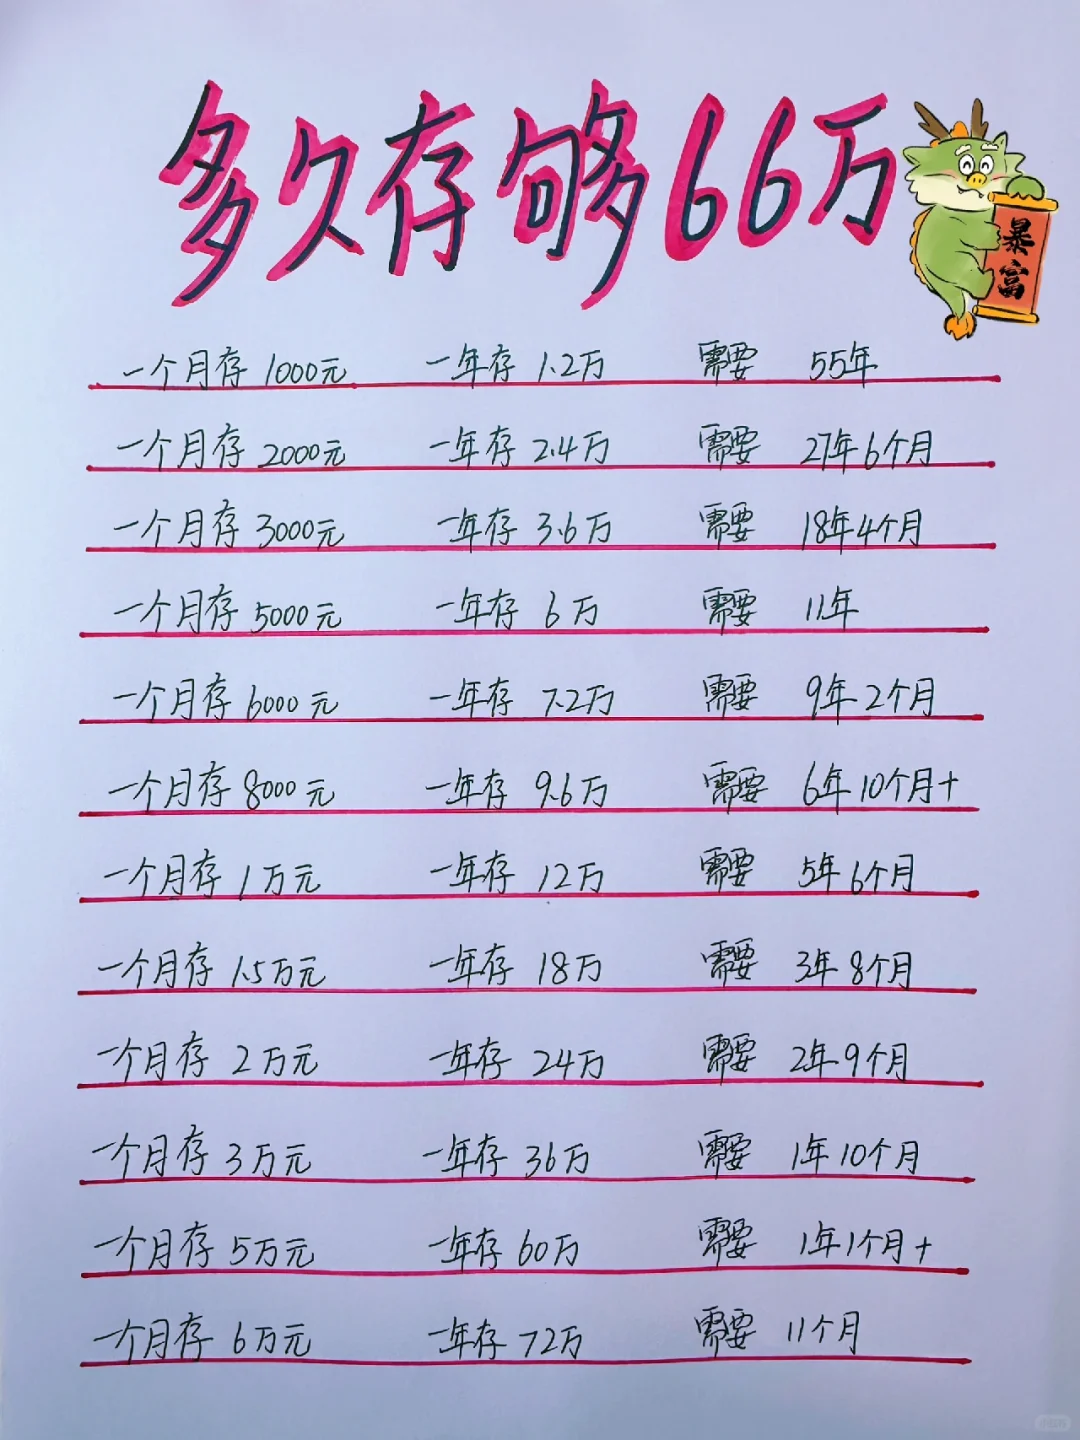 多久存够66万
暴富
一个月存 1000元 一年存 1.2万 需要 55年
一个月存 2000元 一年存 2.4万 需要 27年6个月
一个月存 3000元 一年存 3.6万 需要 18年4个月
一个月存 5000元 一年存 6万 需要 11年
一个月存 6000元 一年存 7.2万 需要 9年2个月
一个月存 8000元 一年存 9.6万 需要 6年10个月+
一个月存 1万元 一年存 12万 需要 5年6个月
一个月存 1.5万元 一年存 18万 需要 3年8个月
一个月存 2万元 一年存 24万 需要 2年9个月
一个月存 3万元 一年存 36万 需要 1年10个月
一个月存 5万元 一年存 60万 需要 1年1个月+
一个月存 6万元 一年存 72万 需要 11个月